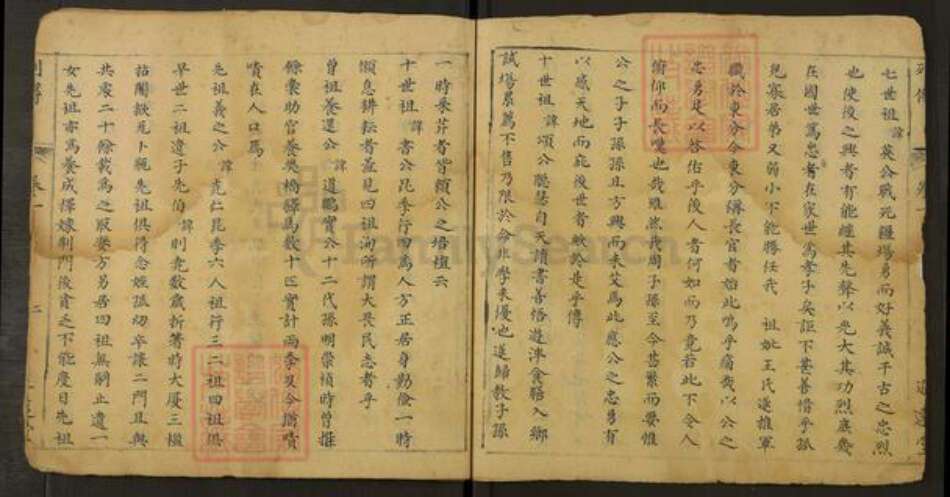 七世祖諱英公戰死疆場勇而好義誠千古之忠烈
也使後之興者有能繼其先聲以光大其功烈庶幾
在國世篤忠者在家世篤孝子矣詎不甚善惜乎孤
兒寡居弟又弱小不能勝任我 祖妣王氏遂推軍
職於東分今東分禱長官者始此嗚乎痛哉以公之
忠勇是以啓佑乎後人者何如而乃竟若此不令人
俯仰而長嘆也哉雖然我周子孫至今昌繁而要惟
公之子子孫孫且方興而未艾焉此應公之忠勇有
以感天地而庇後世者歟於是乎傳
十世祖諱頌公聰慧自天讀書善悟遊津食膳入鄉
試場屢薦不售乃限於命非學未優也遂歸教子孫
一時采芹者皆頌公之培植云
十世祖諱書公昆季行四為人方正居身勤儉一時
懶惰耕耘者羞見四祖洵所謂大畏民志者乎
曾祖養還公諱道鵬實公十二代孫明崇禎時曾推
餘粟助官養吳橋驛馬數十匹實計兩季又今猶嘖
嘖在人口焉
先祖義之公諱堯仁昆季六人祖行三二祖四祖俱
早世二祖遺子先伯諱則堯數歲析箸時大廈三楹
拈鬮歛先卜親先祖俱得念姪孤幼卒讓二門且與
共爨二十餘載為之取妻方另居四祖無嗣止遺一
女先祖亦為養成擇嫁荊門後貧乏不能度日先祖
列傳
卷一
二
FamilySearch